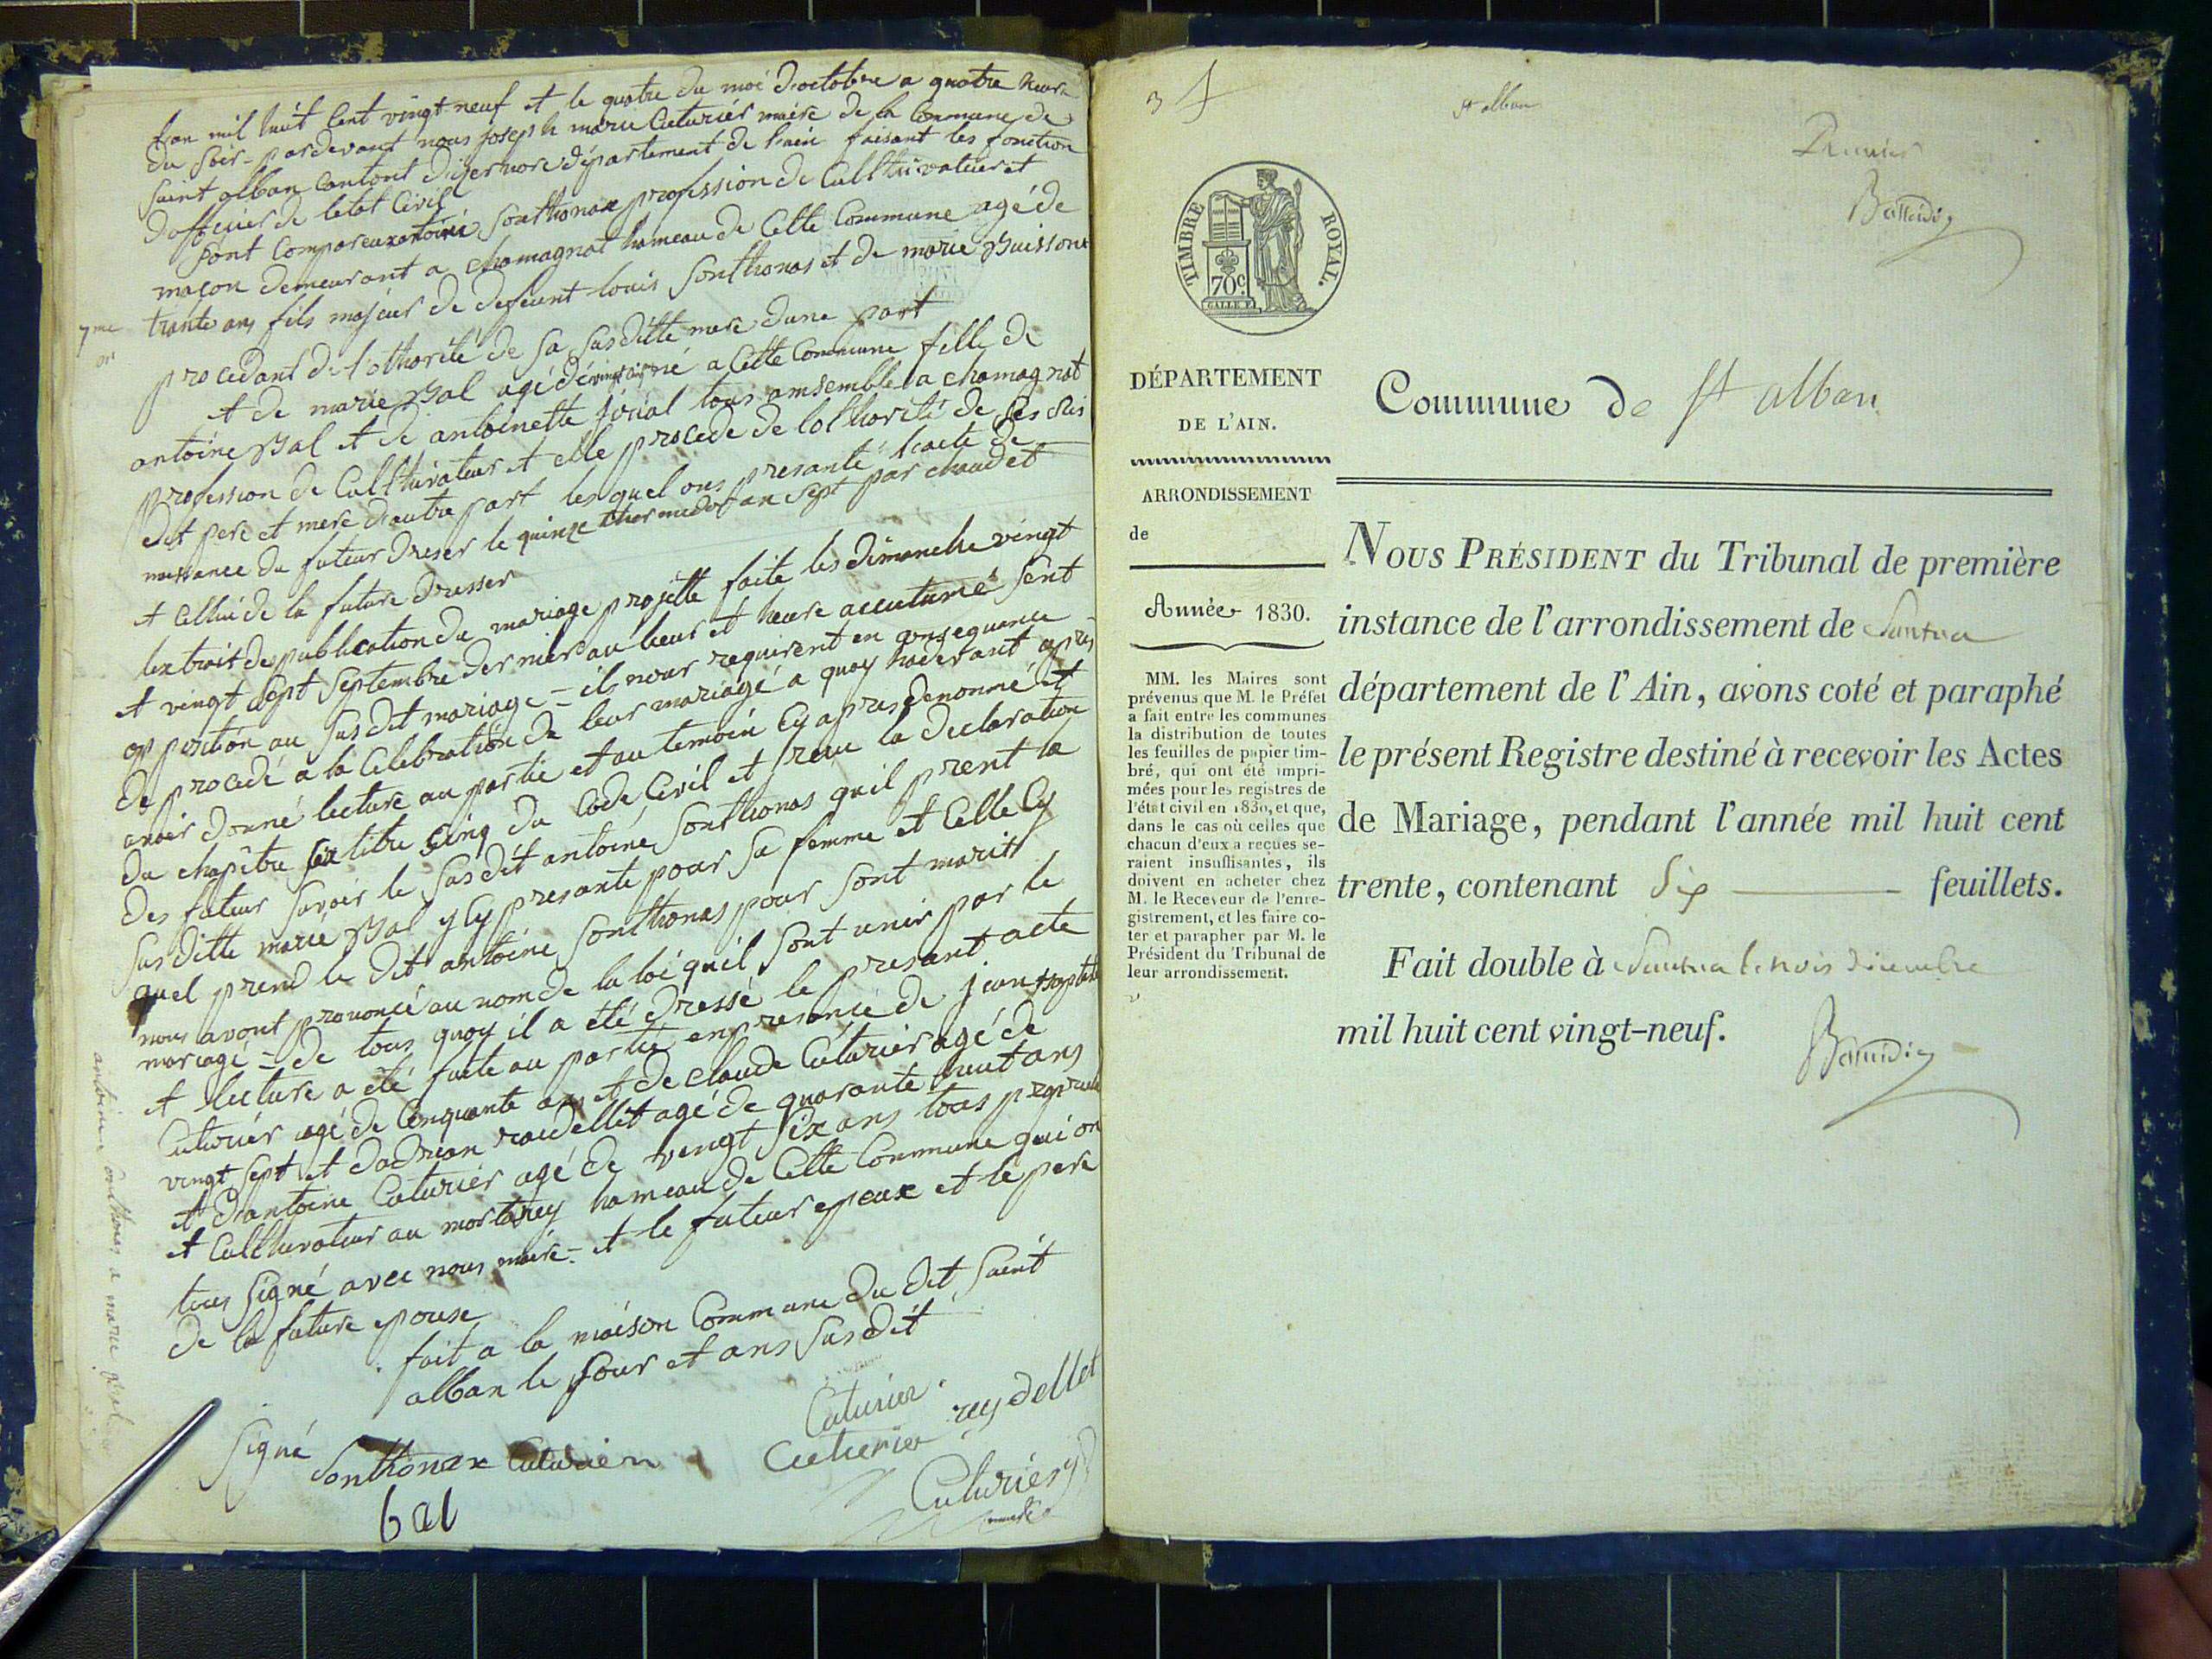 Lan mil huit Cent vingt neuf et le quatre du moi d'octobre a quatre heure
du soir - pardevant nous joseph marie Cuturier maire de la Commune de
saint alban Cantont département de lain faisant les fonction
dofficier de letat Civil
sont Compareux antoine Sonthonax profession de Culthivateur et
maçon demeurant a chamagnat hameau de Cette Commune agé de
trante ans fils majeur de defeunt louis Sonthonas et de marie Buisson
7me
procedant de lothorité de sa susditte mere dune part
et de marie Bal agé de né a Cette Commune fille de
antoine Bal et de antoinette jorial tous ansemble a chamagnat
profession de Culthivateur et elle procede de lothorité de ses sus
dit pere et mere dautre part lesquel ons presanté lacte de
naissance du futeur dreser le quinze thermidor an sept par chaudet
et Cellui de la future dresser
lextrait de publication du mariage projetté faite les dimanche vingt
et vingt sept septembre dernier au lieux et heure accutumé sent
oppozition au susdit mariage = ils nour requirent en consequance
de procedé a la Celebration de leur mariagé a quoy hoderant apres
avoir donné lecture au partie et au temoin Cy apres denommé et
du chapitre six titre cinq du Code Civil et la declaration
des futeur savoir le susdit antoine Sonthonas quil prent la
susditte marie Bal y Cy presante pour sa femme et Celle Cy
quel prend le dit antoine Sonthonas pour sont marit
nous avont prononcé au nom de la loi quil sont unir par le
mariagé = de tous quoy il a été dressé le presant acte
et lecture a été faite au partie en presance de jean
Cuturier agé de Cinquante ans et de claude Cuturier agé de
vingt sept et dadrian raidellet agé de quarante huit ans
et dantoine Cuturier agé de vingt six ans tous
et Culthivateur au mortarey hameau de Cette Commune qui on
tous signé avec nous maire = et le futeur epoux et le pere
de la future epouse
fait a la maison Commune du dit saint
alban le jour et ans susdit
antoine Sonthonas a marie Bal
Signé
Sonthonax Cuturier
Cuturier
Cuturier reydellet
bal
Cuturier
maire
3
st alban
Premier
TIMBRE ROYAL.
70c.
GALLE F.
DÉPARTEMENT
DE L'AIN.
ARRONDISSEMENT
de
Année 1830.
MM. les Maires sont
prévenus que M. le Préfet
a fait entre les communes
la distribution de toutes
les feuilles de papier tim-
bré, qui ont été impri-
mées pour les registres de
l'état civil en 1830, et que,
dans le cas où celles que
chacun d'eux a reçues se-
raient insuffisantes, ils
doivent en acheter chez
M. le Receveur de l'enre-
gistrement, et les faire co-
ter et parapher par M. le
Président du Tribunal de
leur arrondissement.
Commune de St alban
NOUS PRÉSIDENT du Tribunal de première
instance de l'arrondissement de Nantua
département de l'Ain, avons coté et paraphé
le présent Registre destiné à recevoir les Actes
de Mariage, pendant l'année mil huit cent
trente, contenant Six feuillets.
Fait double à Nantua le trois décembre
mil huit cent vingt-neuf.